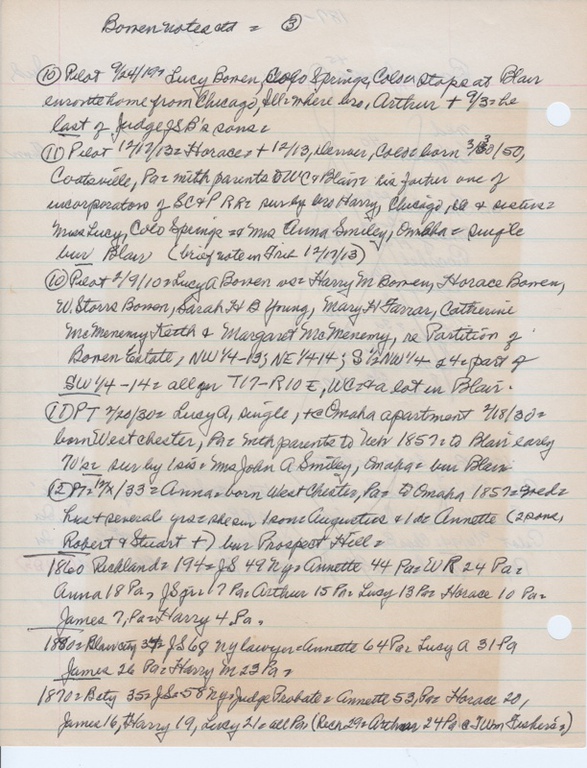 Bowen notes ctd = ③
⑩ Pilot 9/24/19= Lucy Bowen, Colo Springs, Colo= stops at Blair
enroute home from Chicago, Ill= where bro, Arthur + 9/3= he
last of Judge JSB's sons=
⑪ Pilot 12/17/13= Horace= + 12/13, Denver, Colo= born 3/30/50,
Coatsville, Pa= with parents to WC & Blair= his father one of
incorporators of SC&P RR= sur by bro Harry, Chicago, & sisters=
Miss Lucy, Colo Springs = & Mrs Anna Smiley, Omaha = single
bur Blair (brief note in Trib 12/17/13)
⑩ Pilot 2/9/10= Lucy A Bowen vs= Harry M Bowen, Horace Bowen,
W. Storrs Bowen, Sarah H B Young, Mary H Farrar, Catherine
McMenemy Keith & Margaret McMenemy, re Partition of
Bowen Estate, NW 1/4 -13; NE 1/4 14; S 1/2 NW 1/4 24= part of
SW 1/4 -14= all in T17-R10 E, WC= & a lot in Blair.
⑪ PT 2/20/30= Lucy A, single, + @ Omaha apartment 2/18/30=
born West chester, Pa= with parents to Neb 1857= to Blair early
70's= sur by 1 sis= Mrs John A Smiley, Omaha= bur Blair
⑫ PT= /33= Anna= born West Chester, Pa= to Omaha 1857=
hus + several yrs= she sur 1 son= Augustus & 1 da= Annette (2 sons,
Robert & Stuart +) bur Prospect Hill=
1860 Richland= 194= JS 49 Ny= Annette 44 Pa= WR 24 Pa=
Anna 18 Pa= JS jr= 17 Pa= Arthur 15 Pa= Lucy 13 Pa= Horace 10 Pa=
James 7, Pa= Harry 4 Pa.
1880= Blair city 34= JS 68 Ny lawyer= Annette 64 Pa= Lucy A 31 Pa
James 26 Pa= Harry M 23 Pa=
1870= Bcty 35= JS= 58 Ny= Judge Probate= Annette 53, Pa= Horace 20,
James 16, Harry 19, Lucy 21= all Pa= (Rich 29= Arthur 24 Pa @ J Wm Fisher's=)